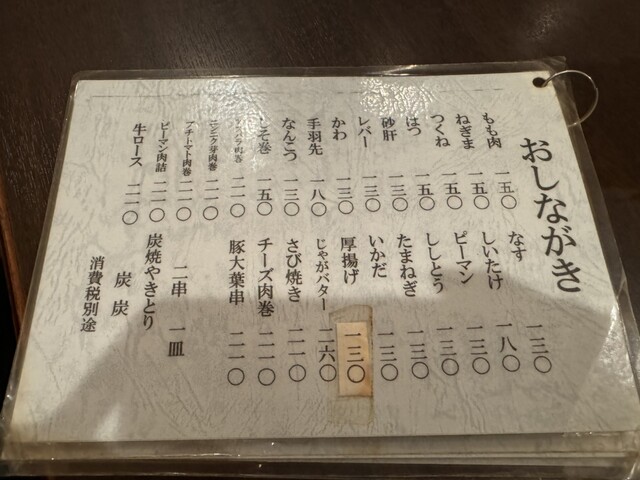 おしながき
もも肉 一五〇
ねぎま 一五〇
つくね 一五〇
はつ 一五〇
砂肝 一三〇
レバー 一三〇
かわ 一三〇
手羽先 一八〇
なんこつ 一三〇
しそ巻 一五〇
アスパラ肉巻 二一〇
ニンニク芽肉巻 二一〇
プチトマト肉巻 二一〇
ピーマン肉詰 二一〇
牛ロース 二一〇
なす 一三〇
しいたけ 一八〇
ピーマン 一三〇
ししとう 一三〇
たまねぎ 一三〇
いかだ 一三〇
厚揚げ 一三〇
じゃがバター 二六〇
さび焼き 二一〇
チーズ肉巻 二一〇
豚大葉串 二一〇
二串 一皿
炭焼やきとり
炭炭
消費税別途